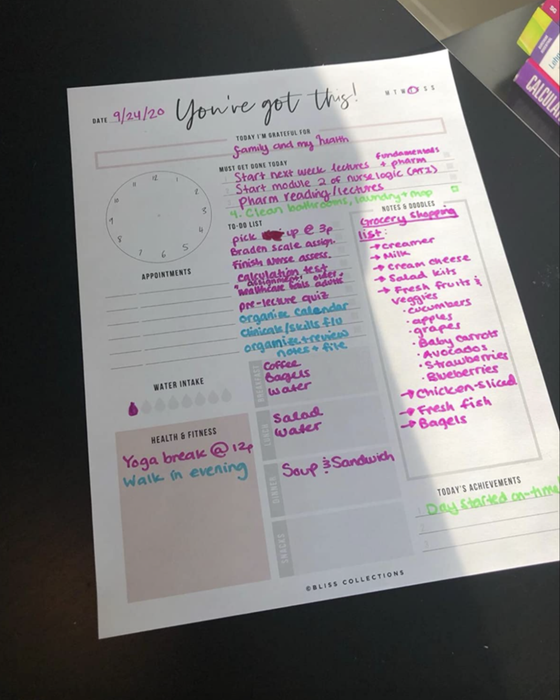 DATE 9/24/20 You've got this! M T W T F S S
TODAY I'M GRATEFUL FOR
family and my health
MUST GET DONE TODAY
Start next week lectures fundamentals + pharm
Start module 2 of nurse logic (ATI)
Pharm reading/lectures
4. Clean bathrooms, laundry + mop
12
1
2
3
4
5
6
7
8
9
10
11
APPOINTMENTS
TO-DO LIST
pick up @ 3p
Braden scale assign.
Finish Nurse assess.
calculation test
assignment: older
Healthcare adults
pre-lecture quiz
organize calendar
clinicals/skills f/u
organize + review
notes + file
NOTES & DOODLES
Grocery shopping
list:
→ creamer
→ Milk
→ cream cheese
→ Salad kits
→ Fresh fruits &
veggies
· cucumbers
· apples
· grapes
· Baby carrots
· Avocados
· Strawberries
· Blueberries
→ Chicken-sliced
→ Fresh fish
→ Bagels
WATER INTAKE
BREAKFAST
Coffee
Bagels
water
LUNCH
Salad
Water
DINNER
Soup & Sandwich
SNACKS
HEALTH & FITNESS
Yoga break @ 12p
Walk in evening
TODAY'S ACHIEVEMENTS
Day started on-time
©BLISS COLLECTIONS
CALCULA